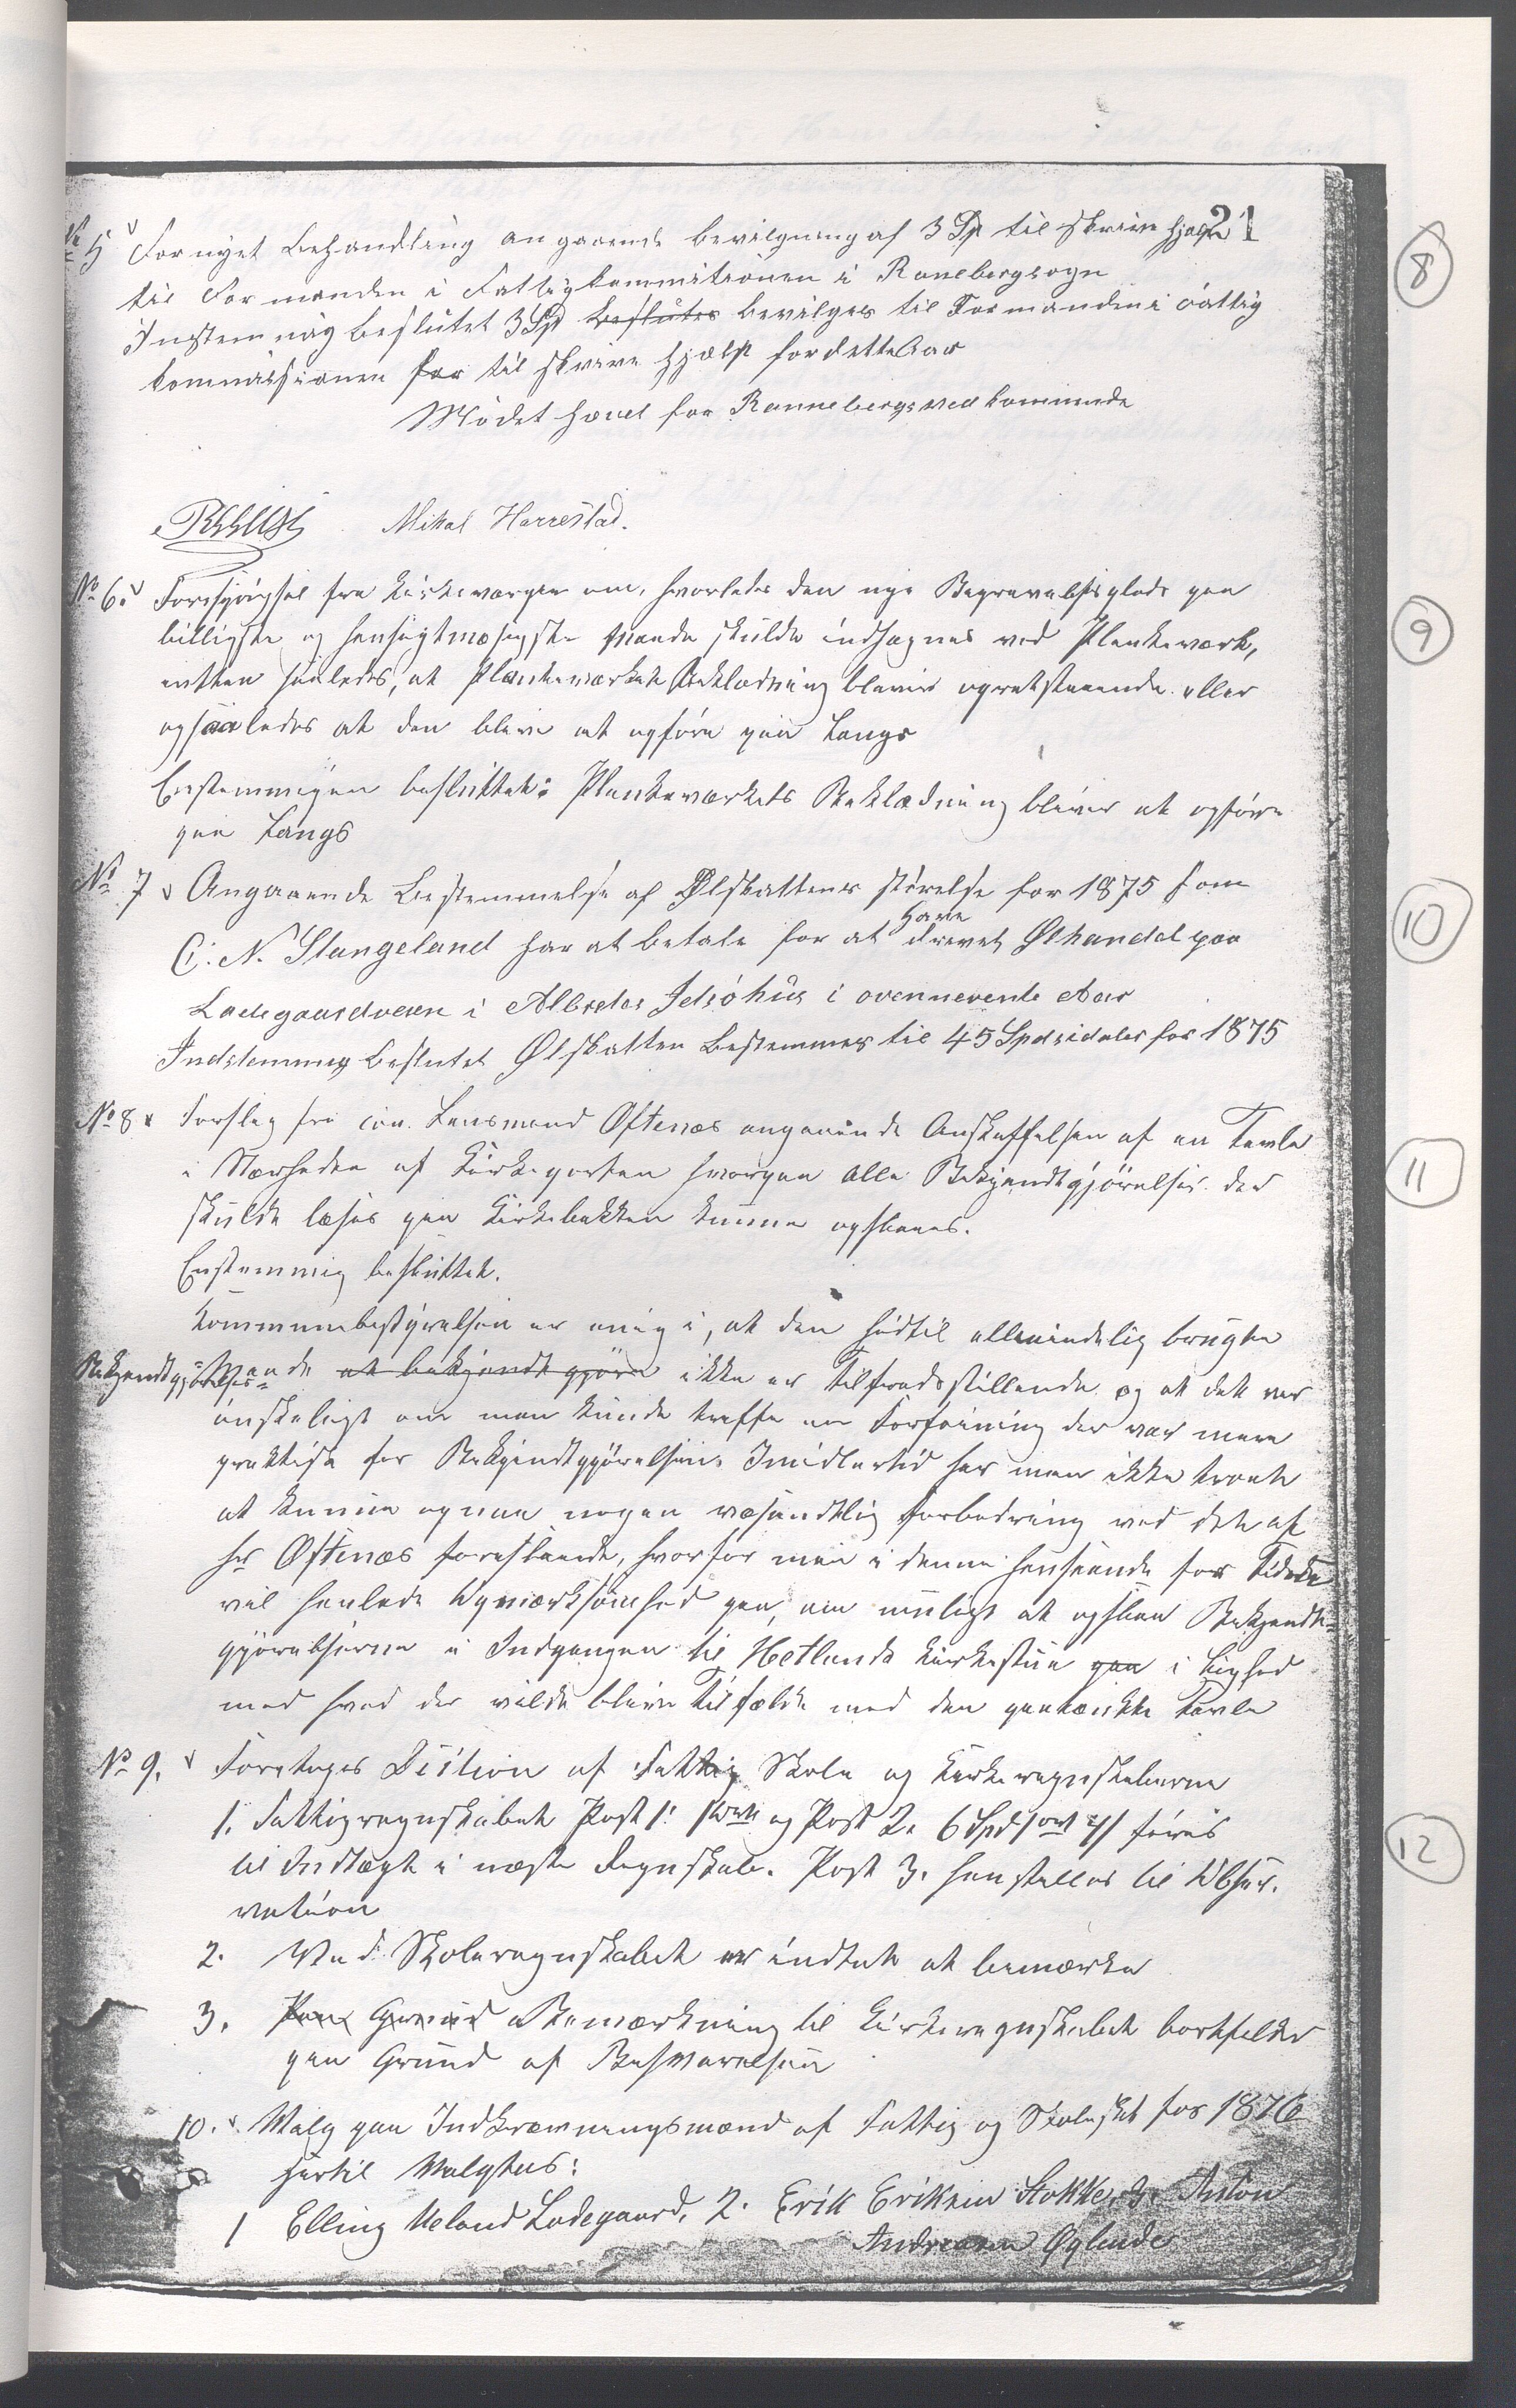 21
No 5 Fornyet Behandling angaaende bevilgning af 3 Sp til skrive hjælp
til Formanden i Fattigkommitionen i Ranebergsogn
Instemmig beslutet 3 Spd beslutes bevilges til Formanden i Fattig
kommissionen for til skrive hjælp for dette Aar
Mødet hævet for Rannebergs vedkommende
Mikal Harrestad.
No 6. Forespørgsel fra Kirkevergen om, hvorledes den nye Begravelsesplads paa
billigste og hensigtmæsigste Maade skulde indhegnes ved Plankeværk,
enten saaledes, at Plankeværkets Beklædning bliver opretstaaende eller
og saaledes at den bliver at opføre paa Langs
Enstemmigen besluttet: Plankeværkets Beklædning bliver at opføre
paa Langs
No 7 Angaaende Bestemmelse af Ølskattens størelse for 1875 som
C. N. Stangeland har at betale for at have drevet Ølhandel paa
Ladegaardveien i Albreder Idsøhus i ovennevente Aar
Indstemmig beslutet Ølskatten bestemmes til 45 Spdsidaler for 1875
No 8 Forslag fra Lensmand Oftenæs angaaende Anskaffelsen af en Tavle
i Nærheden af Kirkeporten hvorpaa alle Bekjendtgjørelser der
skulde læses paa Kirkebakken kunne opslaaes.
Enstemmig besluttet.
Kommunebestyrelsen er enig i, at den hidtil allmindelig brugte
Bekjendtgjørelses- Maade at bekjendtgjøre ikke er tilfredsstillende og at det var
ønskeligt om man kunde treffe en Forføining der var mere
praktisk for Bekjendtgjørelsen. Imidlertid har man ikke troet
at kunne opnaa nogen væsendtlig forbedring ved det af
Hr Oftenæs foreslaaede, hvorfor man i denne henseende for Tiden
vil henlede Opmærksomhed paa, om muligt at opslaa Bekjendt-
gjørelserne i Indgangen til Hetlands Kirkestue paa i Lighed
med hvad der vilde blive Tilfælde med den paatænkte Tavle
No 9. Foretages Desition af Fattig Skole og Kirkeregnskaberne
1. Fattigregnskabet Post 1. og Post 2. 6 Spd føres
til Indtægt i næste Regnskab. Post 3. henstilles til Obser-
vation
2. Ved Skoleregnskabet er indtet at bemærke
3. Paa Grund Bemærkning til Kirkeregnskabet bortfalder
paa Grund af Besvarelsen
10. Valg paa Indkrævningsmænd af Fattig og Skoleskat for 1876
hertil Valgtes:
1 Elling Ueland Ladegaard, 2. Erik Eriksen Stokke, 3. Anton
Andreasen Øglende
8
9
10
11
12